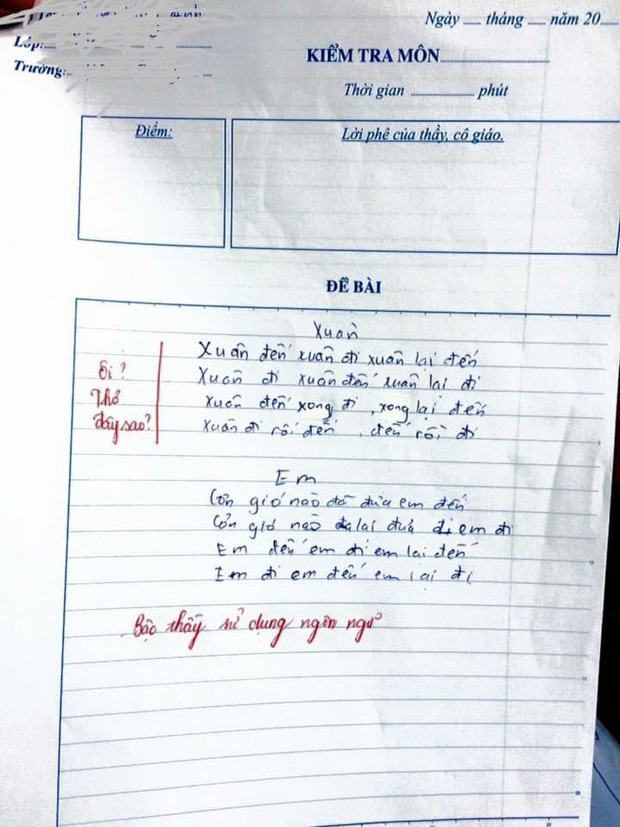 Ngày ..... tháng ..... năm 20.....
Lớp:
Trường:
KIỂM TRA MÔN
Thời gian ............ phút
Điểm:
Lời phê của thầy, cô giáo.
ĐỀ BÀI
Xuân
Xuân đến xuân đi xuân lại đến
Xuân đi xuân đến xuân lại đi
Xuân đến xong đi, xong lại đến
Xuân đi rồi đến, đến rồi đi
Ôi?
Thơ
đây sao?
Em
Cơn gió nào đã đưa em đến
Cơn gió nào lại đưa em đi
Em đến em đi em lại đến
Em đi em đến em lại đi
Bậc thầy sử dụng ngôn ngữ